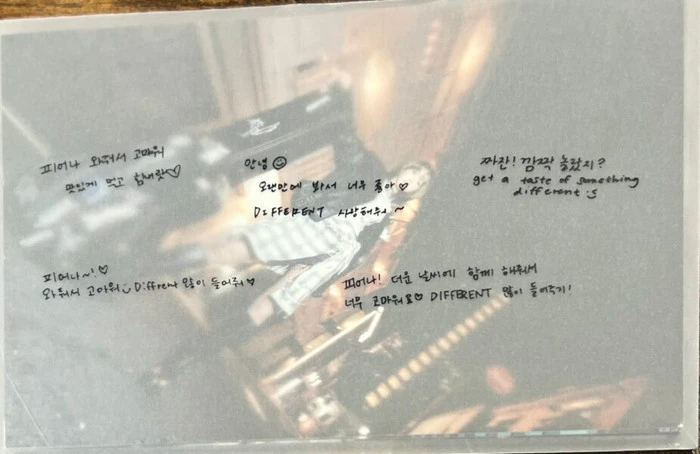 피어나 와줘서 고마워
맛있게 먹고 힘내랏♡
안녕☺
오랜만에 봐서 너무 좋아♡
DIFFERENT 사랑해줘~
짜잔! 깜짝 놀랐지?
get a taste of something
different :s
피어나~!♡
와줘서 고마워 Diffrent 많이 들어줘♡
피어나! 더운 날씨에 함께 해줘서
너무 고마워♡ DIFFERENT 많이 들어주기!